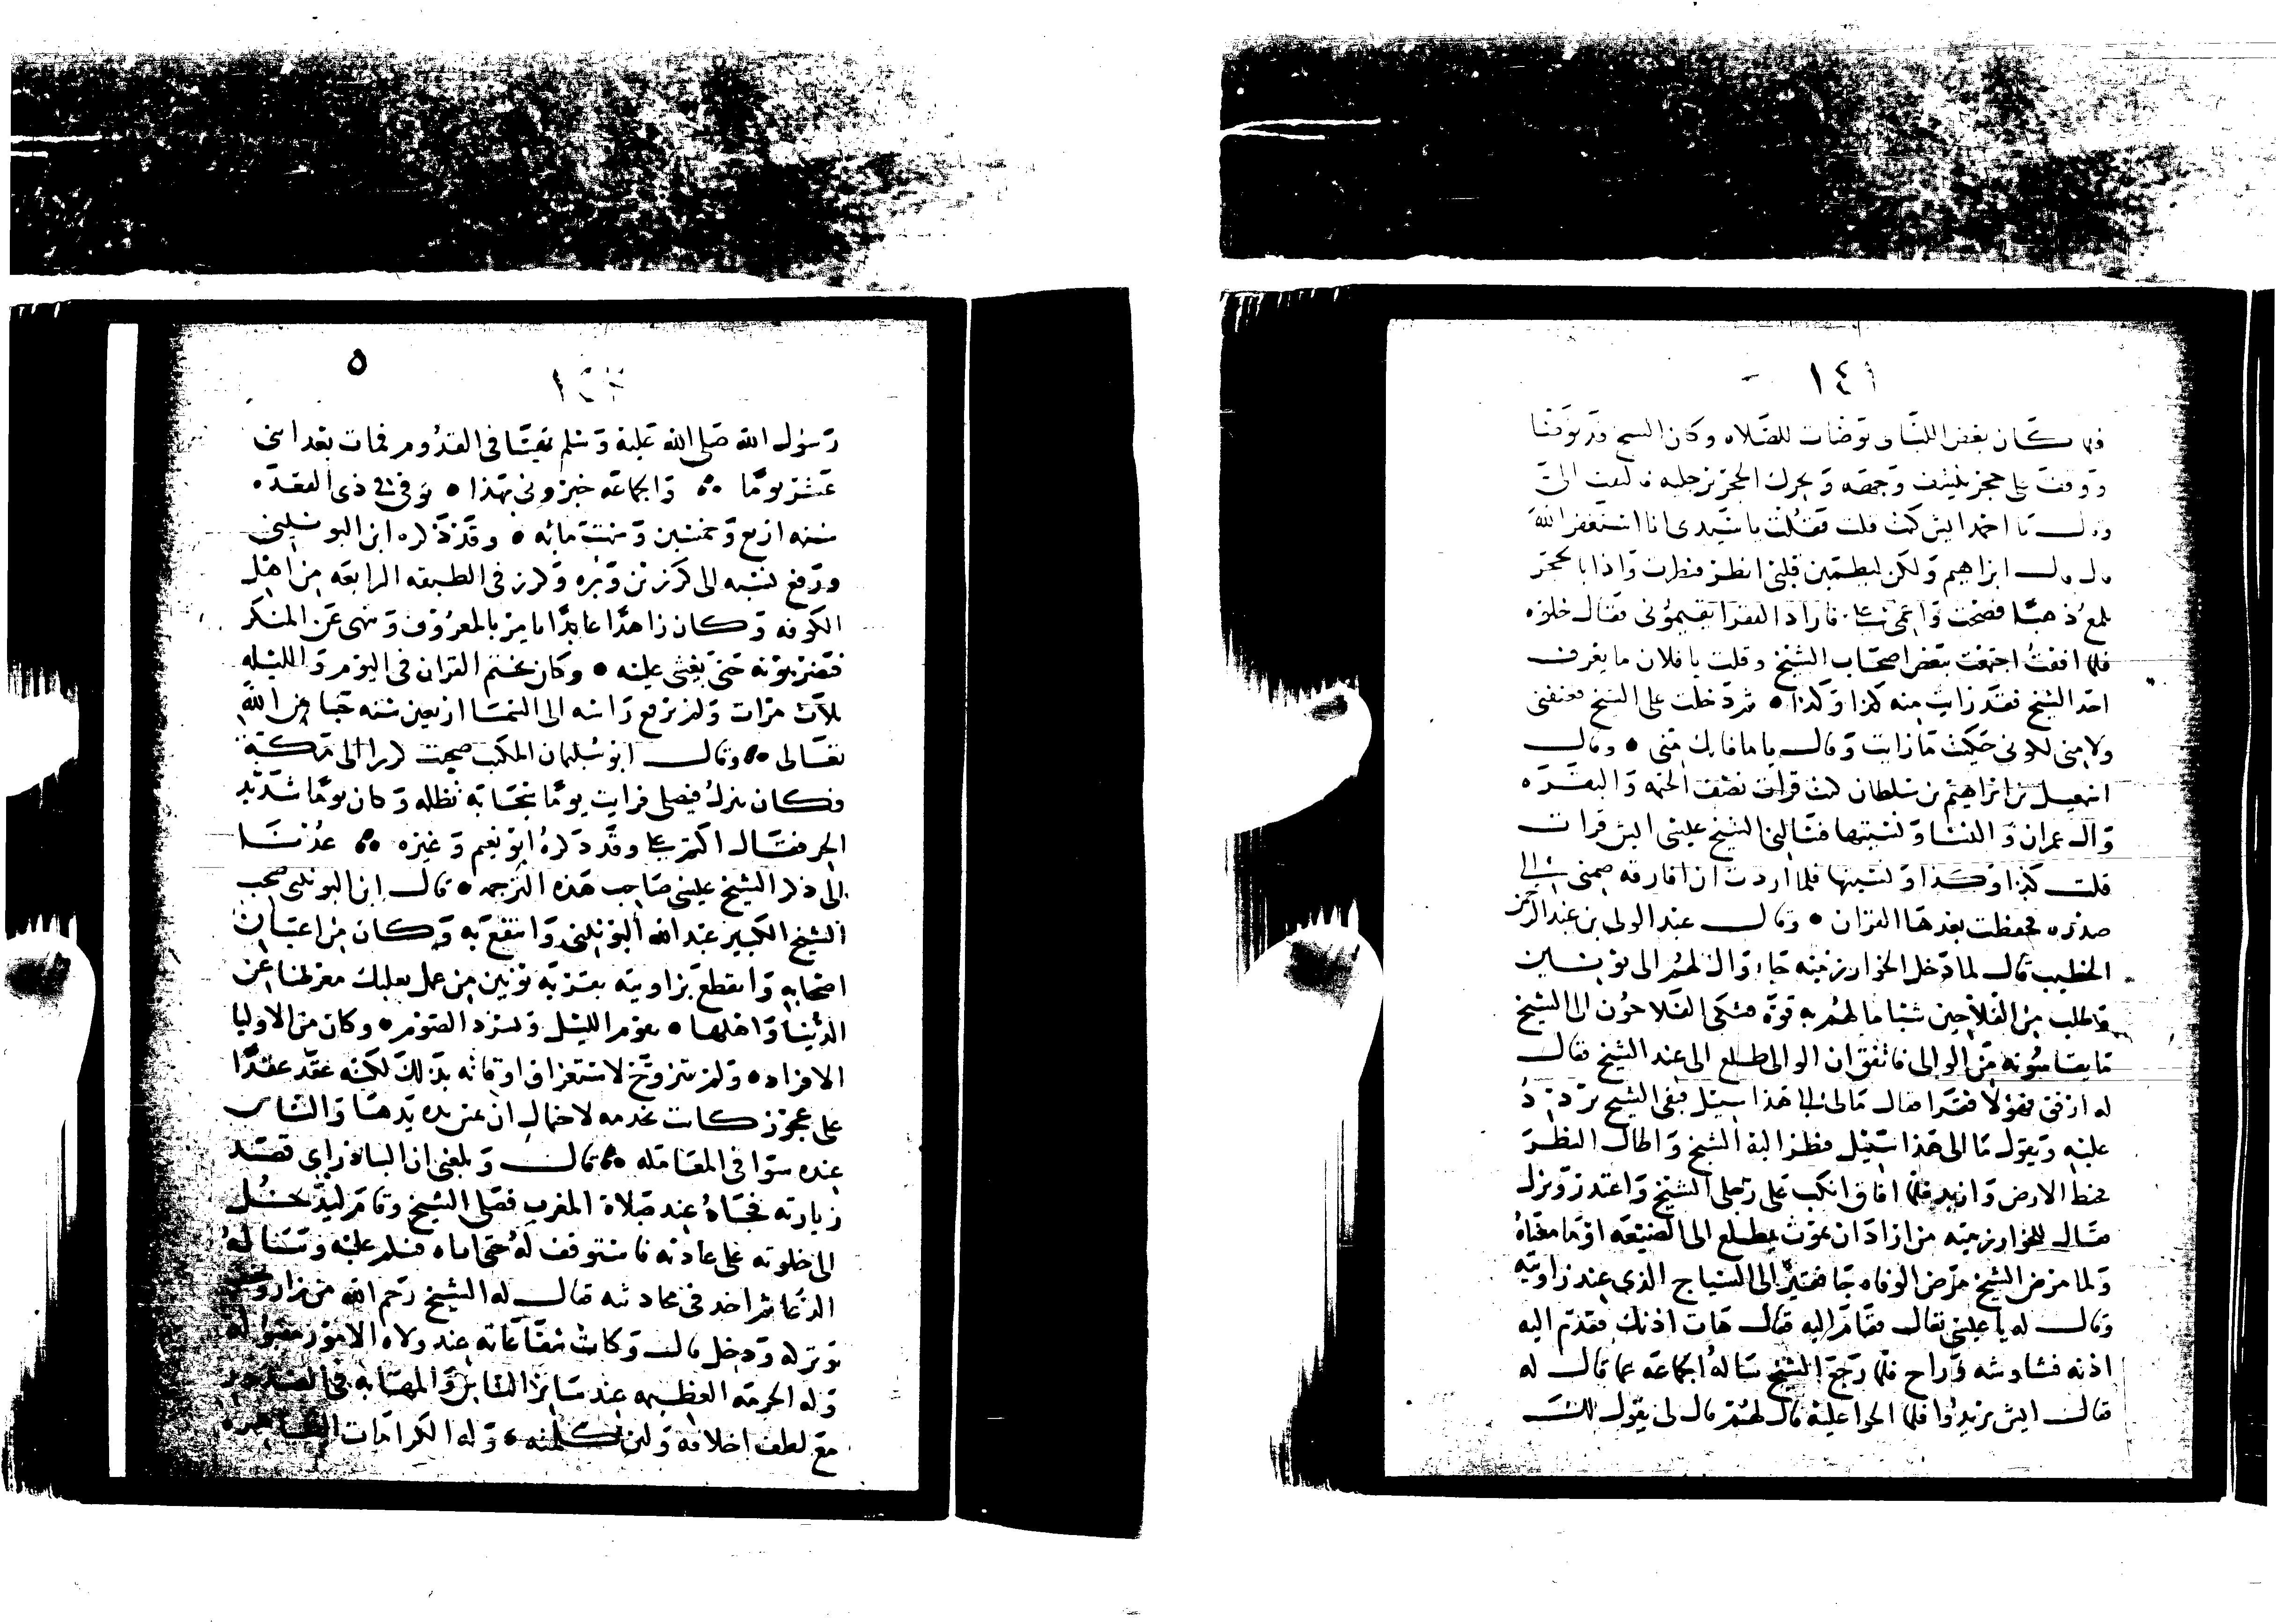 ١٤١
فلما كان بعض الليالى توضات للصلاه وكان الشيخ قد توضا
ووقف على حجر ينشف وجهه وتحرك الحجر برجليه فالتفت الى
وقال يا احمد ايش كنت قلت فقلت يا سيدى انا استغفر الله
قال قال ابراهيم ولكن ليطمين قلبى انظر فنظرت واذا بالحجر
يلمع ذهبا فصحت واغمى على فاراد الفقرا يقيمونى فقال خلوه
فلما افقت اجتمعت ببعض اصحاب الشيخ وقلت يا فلان ما يعرف
احد الشيخ فقد رايت منه كذا وكذا ثم دخلت على الشيخ فعنفنى
ولامنى لكونى حكيت ما رايت وقال يا ما فاتك منى وقال
اسمعيل بن ابراهيم بن سلطان كنت قرات نصف الختمه والبقره
وال عمران والنسا ونسيتها فقال لى الشيخ عيسى ايش قرات
قلت كذا وكذا ونسيتها فلما اردت ان افارقه ضمنى الى
صدره فحفظت بعدها القران وقال عبد الولى بن عبد الرحمن
الخطيب قال لما دخل الخوارزميه جاء وال لهم الى يونين
فطلب من الفلاحين شيا ما لهم به قوة فشكى الفلاحون الى الشيخ
ما يقاسونه من الوالى فاتفق ان الوالى طلع الى عند الشيخ فقال
له ارفق فهولا فقرا فقال مالى الى هذا سبيل فبقى الشيخ يردد
عليه ويقول ما الى هذا سبيل فنظر اليه الشيخ واطال النظر
فخبط الارض وازبد فلما افاق انكب على رجلى الشيخ واعتذر ونزل
فقال للخوارزميه من اراد ان يموت يطلع الى الضيعه او ما معناه
ولما مرض الشيخ مرض الوفاه جا فقير الى السياج الذى عند زاويته
وقال له يا عيسى تعال فقام اليه فقال هات اذنك فقدم اليه
اذنه فشاوشه وراح فلما رجع الشيخ ساله الجماعه عما قال له
فقال ايش تريدوا فلما الحوا عليه قال لهم قال لى يقول لك
٥
رسول الله صلى الله عليه وسلم تهيا فى القدوم فمات بعد اثنى
عشر يوما والجماعه خبرونى بهذا توفى فى ذى القعده
سنه اربع وخمسين وستمائه وقد ذكره ابن اليونينى
ورفع نسبه الى كرز بن وبره وكرز فى الطبقه الرابعه من اهل
الكوفه وكان زاهدا عابدا يامر بالمعروف وينهى عن المنكر
فيضربونه حتى يغشى عليه وكان يختم القران فى اليوم والليله
ثلاث مرات ولم يرفع راسه الى السما اربعين سنه حيا من الله
تعالى وقال ابو سليمان المكتب صحبت كرزا الى مكة
فكان ينزل فيصلى فرايت يوما سحابه تظله وكان يوما شديد
الحر فقال اكتم على وقد ذكره ابو نعيم وغيره عدنا
الى ذكر الشيخ عيسى صاحب هذه الترجمه قال ابن اليونينى صحب
الشيخ الكبير عبد الله اليونينى وانتفع به وكان من اعيان
اصحابه وانقطع بزاويته بقريه يونين من عمل بعلبك معرضا عن
الدنيا واهلها يقوم الليل ويسرد الصوم وكان من الاوليا
الافراد ولم يتزوج لاستغراق اوقاته بذلك لكنه عقد عقدا
على عجوز كانت تخدمه لاحتمال ان تمس يده يدها والناس
عنده سوا فى المعامله قال وبلغنى ان الباذراى قصد
زيارته فجاه عند صلاة المغرب فصلى الشيخ وقام ليدخل
الى خلوته على عادته فاستوقف له حتى اتاه فسلم عليه وسئاله
الدعا ثم اخذ فى محادثته فقال له الشيخ رحم الله من زار وخفف
وتركه ودخل قال وكانت شفاعاته عند ولاه الامور مقبوله
وله الحرمه العظيمه عند سائر الناس والمهابه فى الصدور
مع لطف اخلاقه ولين كلمته وله الكرامات الظاهره